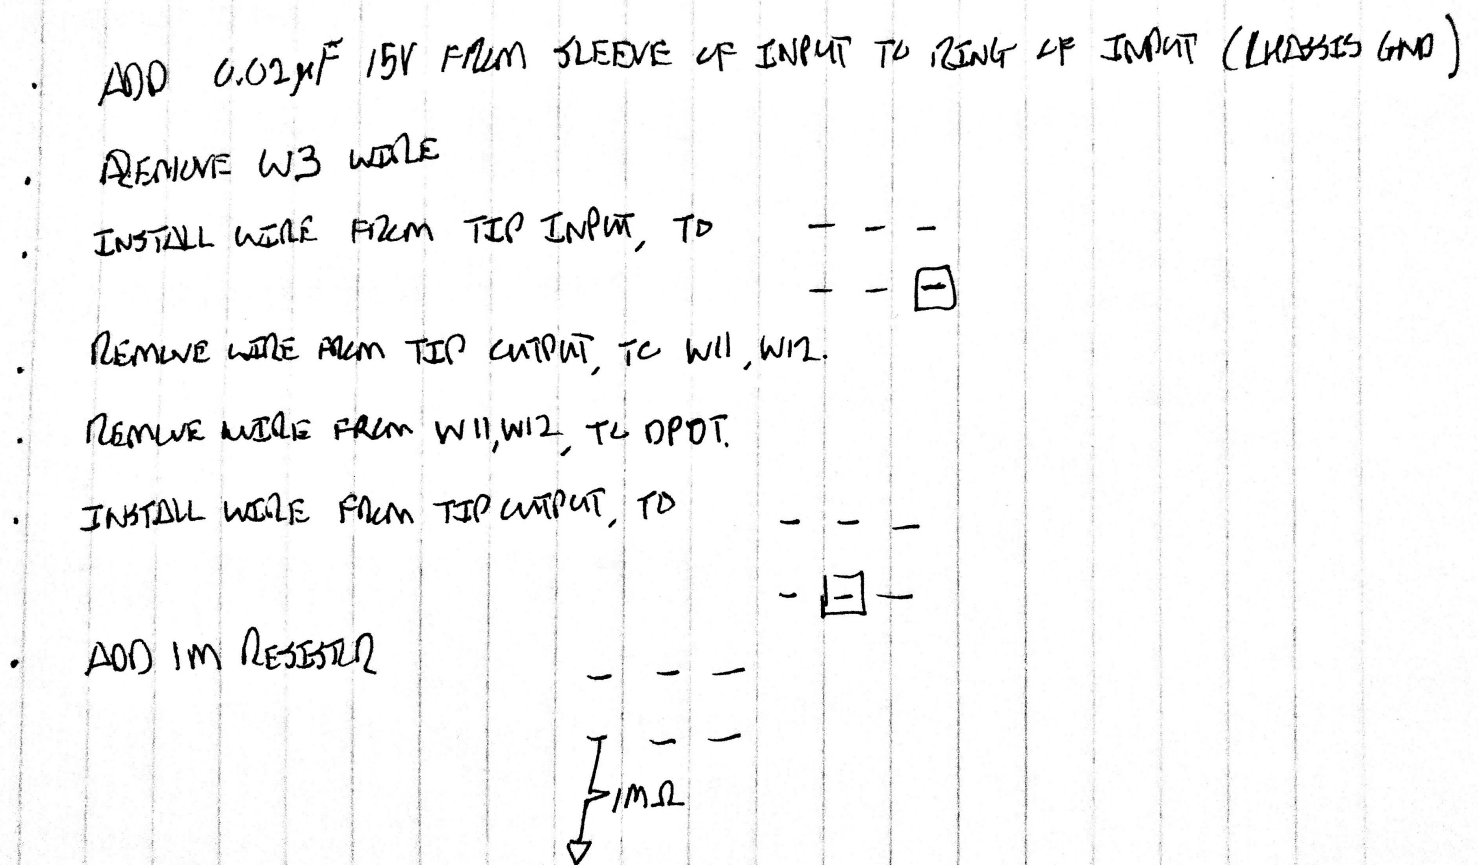 · ADD 0.02µF 15V FROM SLEEVE OF INPUT TO RING OF INPUT (CHASSIS GND)
· REMOVE W3 WIRE
· INSTALL WIRE FROM TIP INPUT, TO
· REMOVE WIRE FROM TIP OUTPUT, TO W11, W12.
· REMOVE WIRE FROM W11, W12, TO DPDT.
· INSTALL WIRE FROM TIP OUTPUT, TO
· ADD 1M RESISTOR
1MΩ